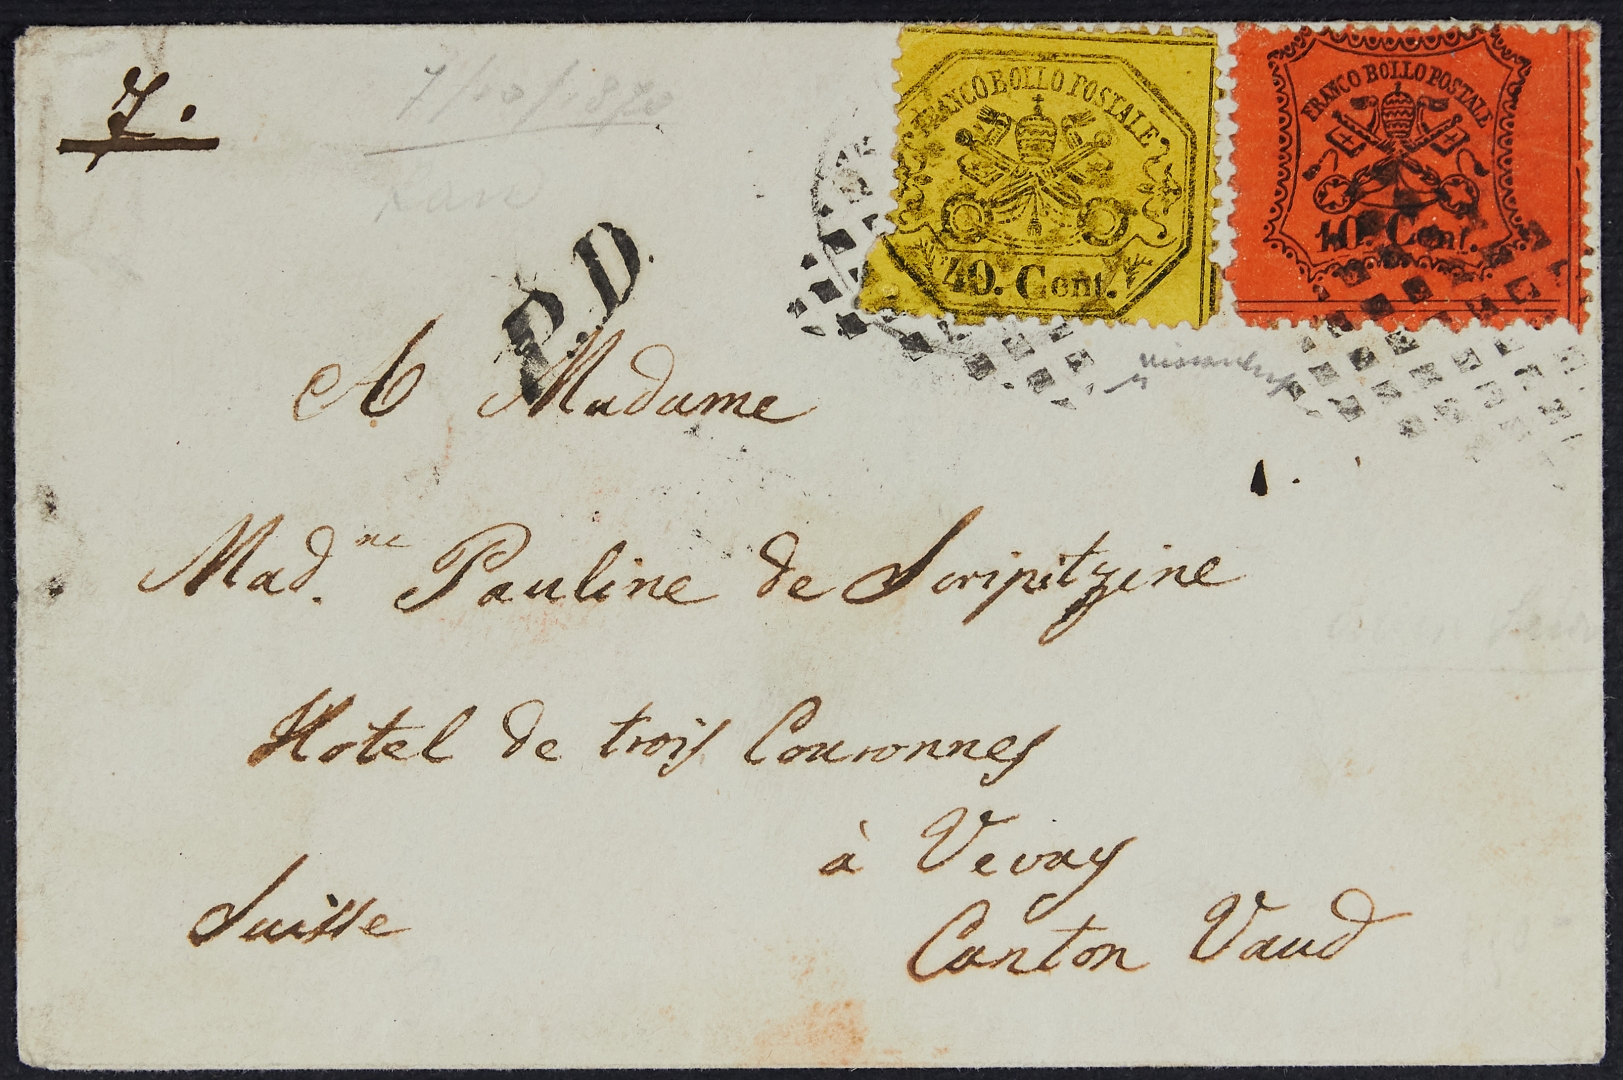 7.
7/10/1870
FRANCO BOLLO POSTALE
40. Cent.
FRANCO BOLLO POSTALE
10. Cent.
P.D.
A Madame
Mad.me Pauline de Scripitzine
Hotel de trois Couronnes
à Vevay
Suisse
Canton Vaud